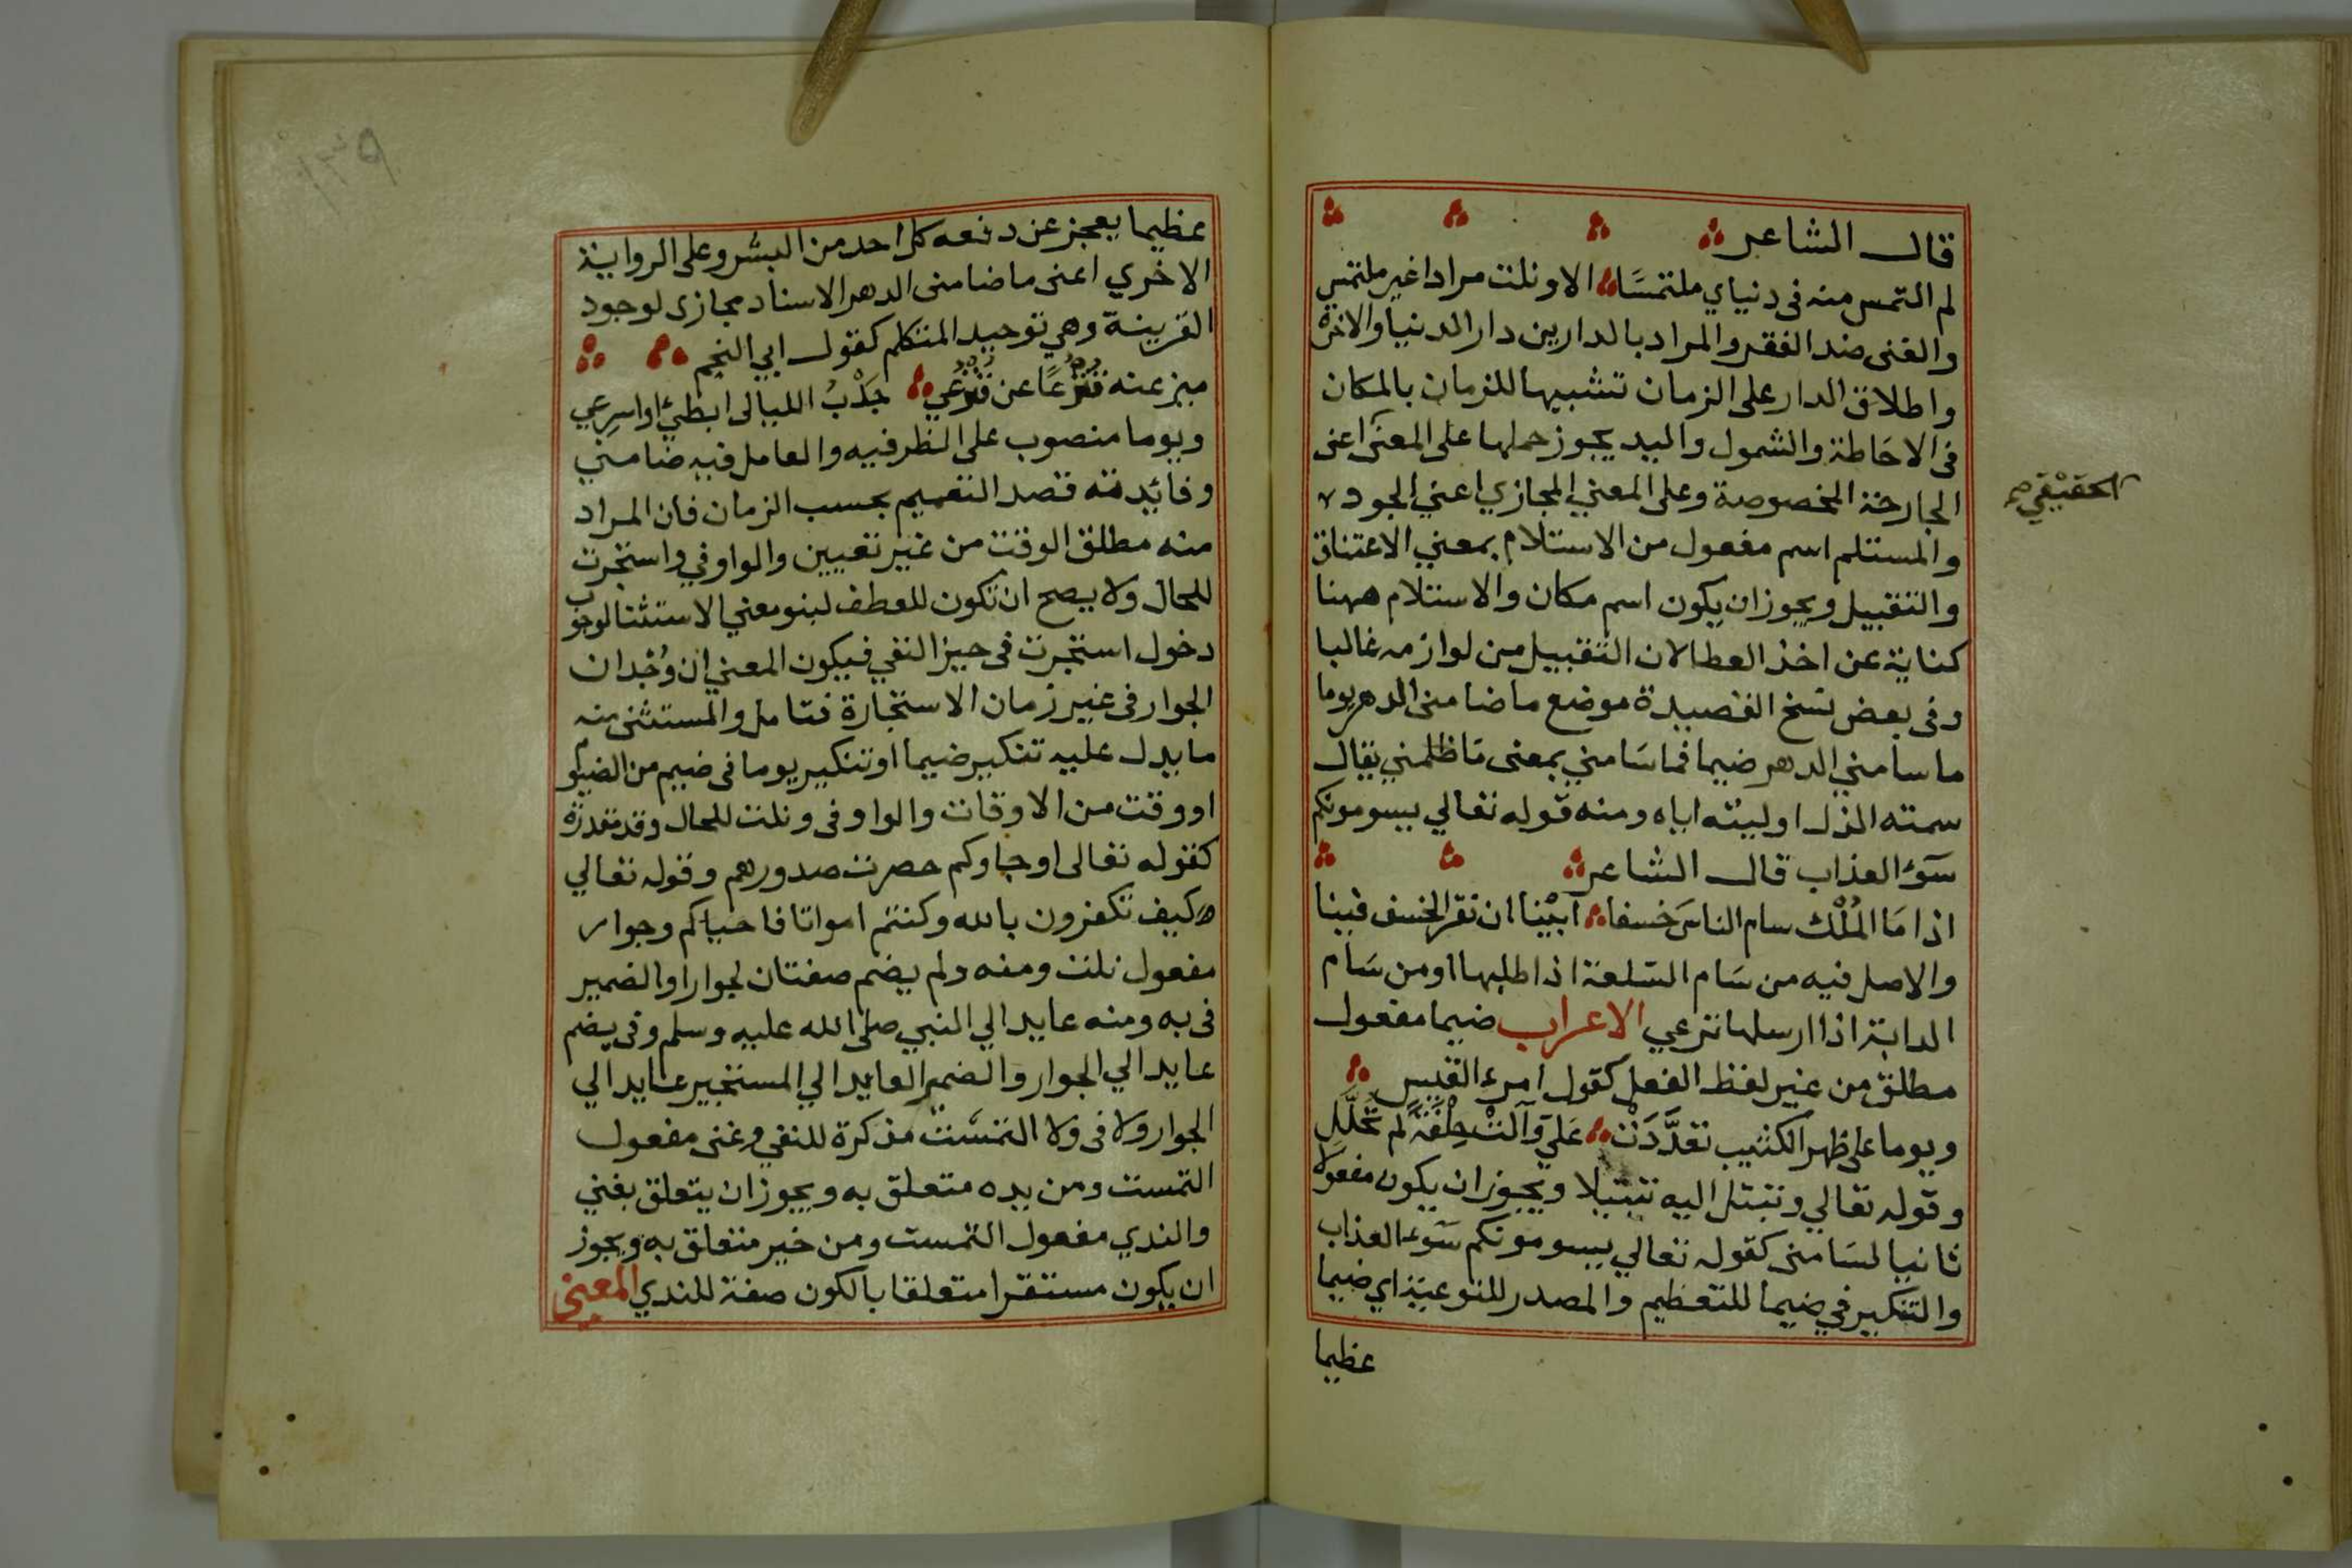 قال الشاعر
لم التمس منه في دنياي ملتمسَا الا ونلت مرادا غير ملتمس
والغنى ضد الفقر والمراد بالدارين دار الدنيا والاخرة
واطلاق الدار على الزمان تشبيها للزمان بالمكان
في الاحَاطة والشمول واليد يجوز حملها على المعنى اعنى
الحقيقي صح
الجارحة المخصوصة وعلى المعني المجازي اعني الجود
والمستلم اسم مفعول من الاستلام بمعني الاعتناق
والتقبيل ويجوز ان يكون اسم مكان والاستلام ههنا
كناية عن اخذ العطا لان التقبيل من لوازمه غالبا
وفي بعض نسخ القصيدة موضع ما ضامنى الدهر يوما
ما سامني الدهر ضيما فما سَامني بمعنى مَا ظلمني يقال
سمته الذل اوليته اياه ومنه قوله تعالي يسومونكم
سَوءَ العذاب قال الشاعر
اذا مَا المُلْك سام الناسَ خسفا آبَيْنا ان نقر الخسف فينا
والاصل فيه من سَام السّلعة اذا طلبها او من سَام
الدابة اذا ارسلها ترعي الاعراب ضيما مفعول
مطلق من غير لفظ الفعل كقول امرء القيس
ويوما على ظهر الكثيب تعذَّدَتْ عَلَيّ وآلتْ حِلْفَةً لم تَحَلَّلِ
وقوله تعالي وتبتل اليه تبتيلا ويجوز ان يكون مفعولا
ثانيا لسَامنى كقوله تعالي يسومونكم سَوء العذاب
والتنكير في ضيما للتعظيم والمصدر للنوعية اي ضيما
عظيما
عظيما يعجز عن دفعه كل احد من البشر وعلى الرواية
الاخري اعنى ما ضامنى الدهر الاسناد مجازى لوجود
القرينة وهي توحيد المتكلم كقول ابي النجم
ميز عنه قنزعًا عن قنزعي جَذْبُ الليالى ابطئ او اسرِعي
ويوما منصوب على الظرفيه والعامل فيه ضامني
وفائدته قصد التعميم بحسب الزمان فان المراد
منه مطلق الوقت من غير تعيين والواو في واستجرت
للحال ولا يصح ان تكون للعطف لينو معني الاستثنا لوجوب
دخول استجرت في حيز النفي فيكون المعني ان وُجْدان
الجوار في غير زمان الاستجارة فتامل والمستثنى منه
ما يدل عليه تنكير ضيما او تنكير يوما في ضيم من الضيم
او وقت من الاوقات والواو في ونلت للحال وقد مقدرة
كقوله تعالى اوجاوكم حصرت صدورهم وقوله تعالي
كيف تكفرون بالله وكنتم امواتا فاحياكم وجوار
مفعول نلت ومنه ولم يضم صفتان لجوارا والضمير
في به ومنه عايد الي النبي صلى الله عليه وسلم وفي يضم
عايد الي الجوار والضمير العايد الي المستجير عايد الي
الجوار ولا في ولا التمسْت مذكرة للنفي وغنى مفعول
التمست ومن يده متعلق به ويجوز ان يتعلق بغني
والندي مفعول التمست ومن خير متعلق به ويجوز
ان يكون مستقرا متعلقا بالكون صفة للندي المعنى